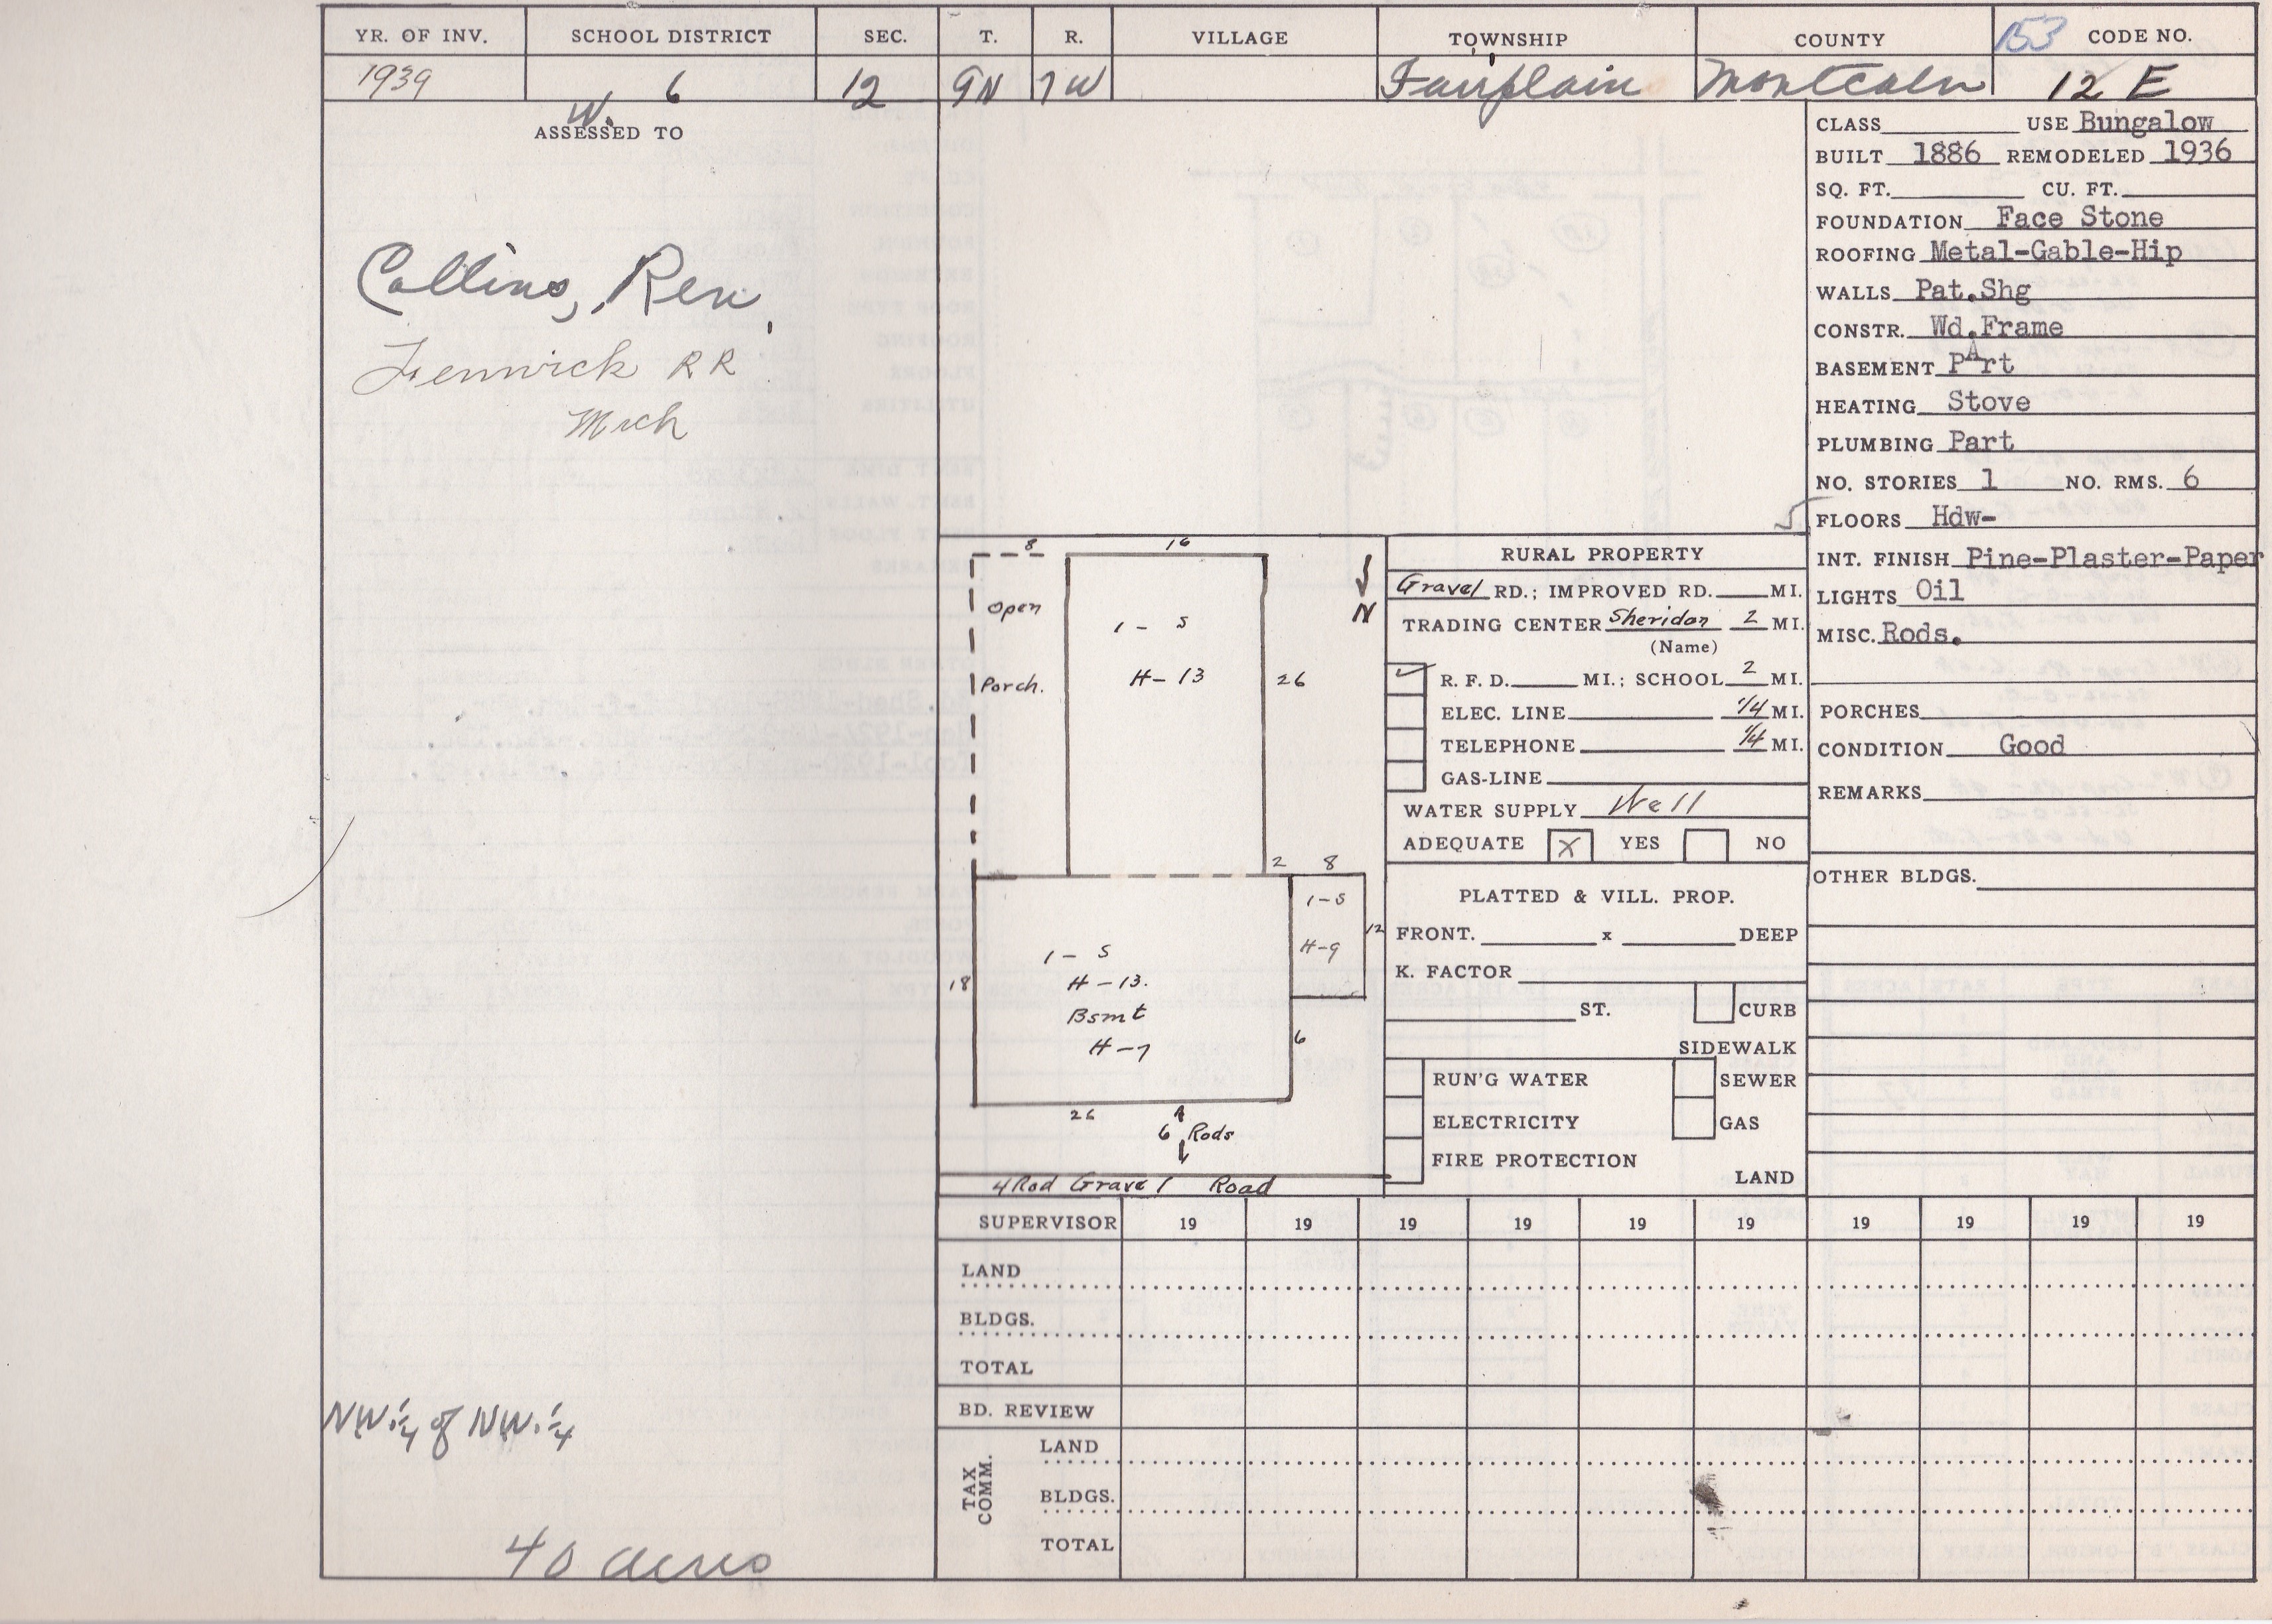 YR. OF INV. SCHOOL DISTRICT SEC. T. R. VILLAGE TOWNSHIP COUNTY 153 CODE NO.
1939 W. 6 12 9N 7W Fairplain Montcalm 12 E
ASSESSED TO
Collins, Rex
Fenwick RR
Mich
NW.¼ of NW.¼
40 acres
8 16
Open
Porch.
1 - S
H - 13
26
N
2 8
1 - S
H - 9
12
1 - S
H - 13.
Bsmt
H - 7
18
6
26
6 Rods
4 Rod Gravel Road
RURAL PROPERTY
Gravel RD.; IMPROVED RD. MI.
TRADING CENTER Sheridan 2 MI.
(Name)
R. F. D. MI.; SCHOOL 2 MI.
ELEC. LINE 1/4 MI.
TELEPHONE 1/4 MI.
GAS-LINE
WATER SUPPLY Well
ADEQUATE X YES NO
PLATTED & VILL. PROP.
FRONT. x DEEP
K. FACTOR
ST. CURB
SIDEWALK
RUN'G WATER SEWER
ELECTRICITY GAS
FIRE PROTECTION
LAND
CLASS USE Bungalow
BUILT 1886 REMODELED 1936
SQ. FT. CU. FT.
FOUNDATION Face Stone
ROOFING Metal-Gable-Hip
WALLS Pat.Shg
CONSTR. Wd.Frame
BASEMENT PArt
HEATING Stove
PLUMBING Part
NO. STORIES 1 NO. RMS. 6
FLOORS Hdw-
INT. FINISH Pine-Plaster-Paper
LIGHTS Oil
MISC. Rods.
PORCHES
CONDITION Good
REMARKS
OTHER BLDGS.
SUPERVISOR 19 19 19 19 19 19 19 19 19 19
LAND
BLDGS.
TOTAL
BD. REVIEW
TAX COMM.
LAND
BLDGS.
TOTAL